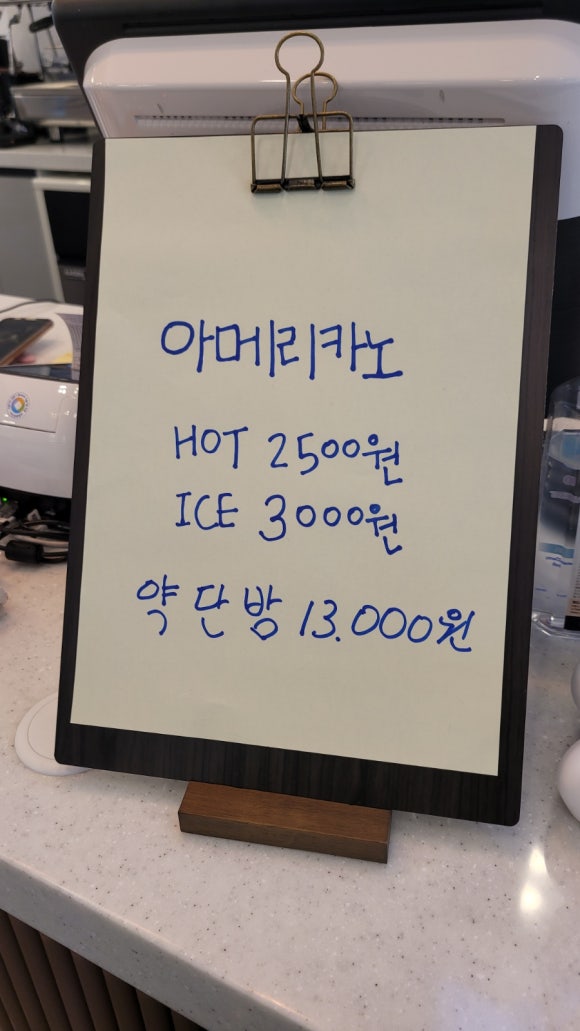 아메리카노
HOT 2500원
ICE 3000원
약 단 밤 13.000원